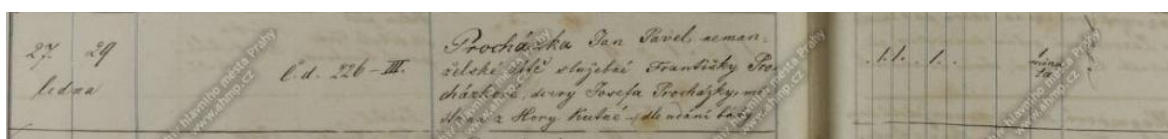 27. 29
ledna
č. d. 226-III.
Procházka Jan Pavel, neman-
želské dítě služebné Františky Pro-
cházkové, dcery Josefa Procházky, mě-
šťana z Hory Kutné - dle udání báby
.1.1. .1. .
1
minu
ta
hlavního města Prahy
www.ahmp.cz